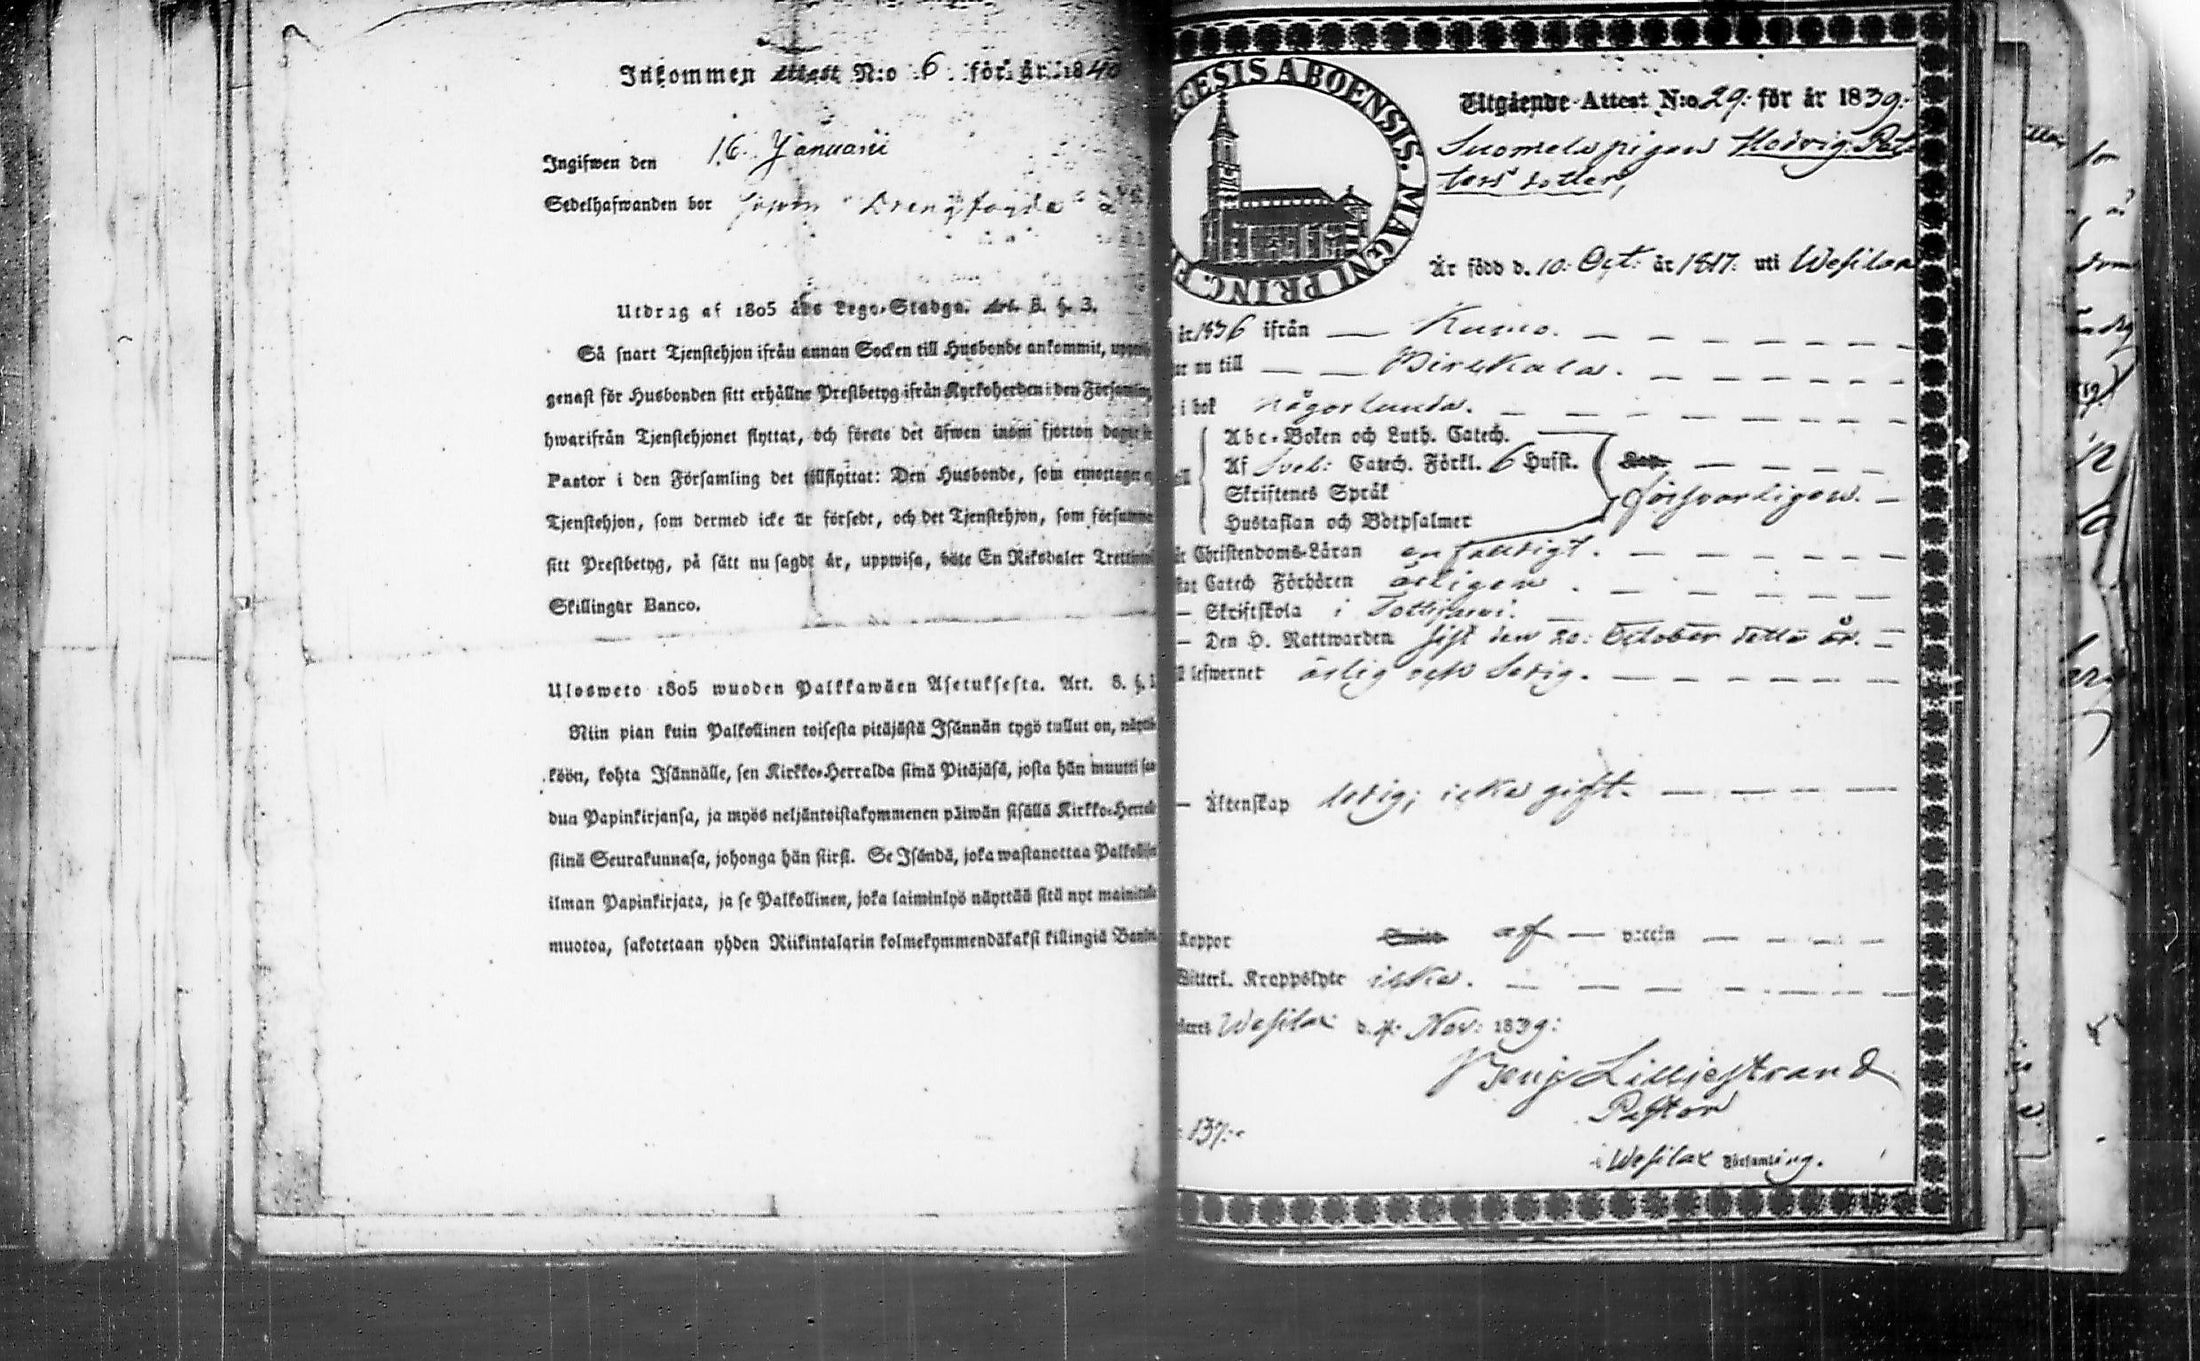 Inkommen attest N:o 6 för år 1840
Ingifwen den 16 Januarii
Sedelhafwanden bor
Utdrag af 1805 års Lego-Stadga. Art. 8. §. 3.
Så snart Tjenstehjon ifrån annan Socken till Husbonde ankommit,
genast för Husbonden sitt erhållne Prestbetyg ifrån Kyrkoherden i den Församling
hwarifrån Tjenstehjonet flyttat, och förete det äfwen inom fjorton dagar
Pastor i den Församling det tillflyttat: Den Husbonde, som emottager
Tjenstehjon, som dermed icke är försedt, och det Tjenstehjon, som försumma
sitt Prestbetyg, på sätt nu sagdt är, uppwisa, böte En Riksdaler Trettio
Skillingar Banco.
Ulosweto 1805 wuoden Palkkawäen Asetuksesta. Art. 8. §.
Niin pian kuin Palkollinen toisesta pitäjästä Isännän tygö tullut on, näyttä
köön, kohta Isännälle, sen Kirkko-Herralda siinä Pitäjäsä, josta hän muutti saa
dun Papinkirjansa, ja myös neljäntoistakymmenen päiwän sisällä Kirkko-Herralle
siinä Seurakunnasa, johonga hän siirsi. Se Isändä, joka wastanottaa Palkollisen
ilman Papinkirjata, ja se Palkollinen, joka laiminlyö näyttää sitä nyt mainitulla
muotoa, sakotetaan yhden Riikintalarin kolmekymmendäkaksi killingiä Banko
ECESIS ABOENSIS. MAGNI PRINC. F
Utgående Attest N:o 29: för år 1839:
Suomela pigan Hedvig Pet
ters dotter,
Är född d. 10: Oct: år 1817: uti Wesilax
år 1836 ifrån — Kumo. — — —
nu till — — Birckala. — — —
i bok någorlunda. — — —
Abc-Boken och Luth. Catech.
Af Sveb: Catech. Förkl. 6 Hufst.
Skriftenes Språk försvarligen. —
Hustaflan och Botpsalmer
Christendoms-Läran enfaldigt. — — —
Catech Förhören årligen. — — —
— Skriftskola i
— Den H. Nattwarden sist den 20: October detta år. —
lefwernet ärlig och sedig. — — —
— Äktenskap ledig; icke gift. — — —
Koppor af — vaccin — — —
Witterl. Kroppslyte icke. — — —
Wesilax d. 4. Nov: 1839:
Benj Lilljestrand
Pastor
i Wesilax Församling.
137: